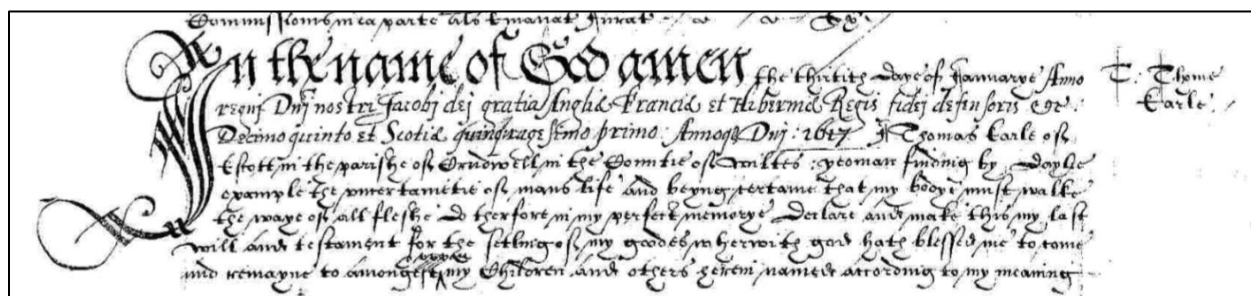 Commissionis in ea parte als emanat Jurat
In the name of God amen the thirtith daye of Januarye Anno
T. Thome
Earle
regni Dni nostri Jacobi dei gratia Angliæ Franciæ et Hiberniæ Regis fidei defensoris &c
Decimo quinto et Scotiæ quinquagesimo primo: Annoq Dni: 1617 I Thomas Earle of
Estott in the parishe of Crudwell in the Countie of Wiltes: yeoman findinig by daylie
example the uncertaintie of mans life and beyng certaine that my bodye must walke
the waye of all fleshe do therfore in my perfect memorye declare and make this my last
will and testament for the setling of my goodes wherwith god hath blessed me to come
and remayne to amongest my Children and others herein named according to my meaning